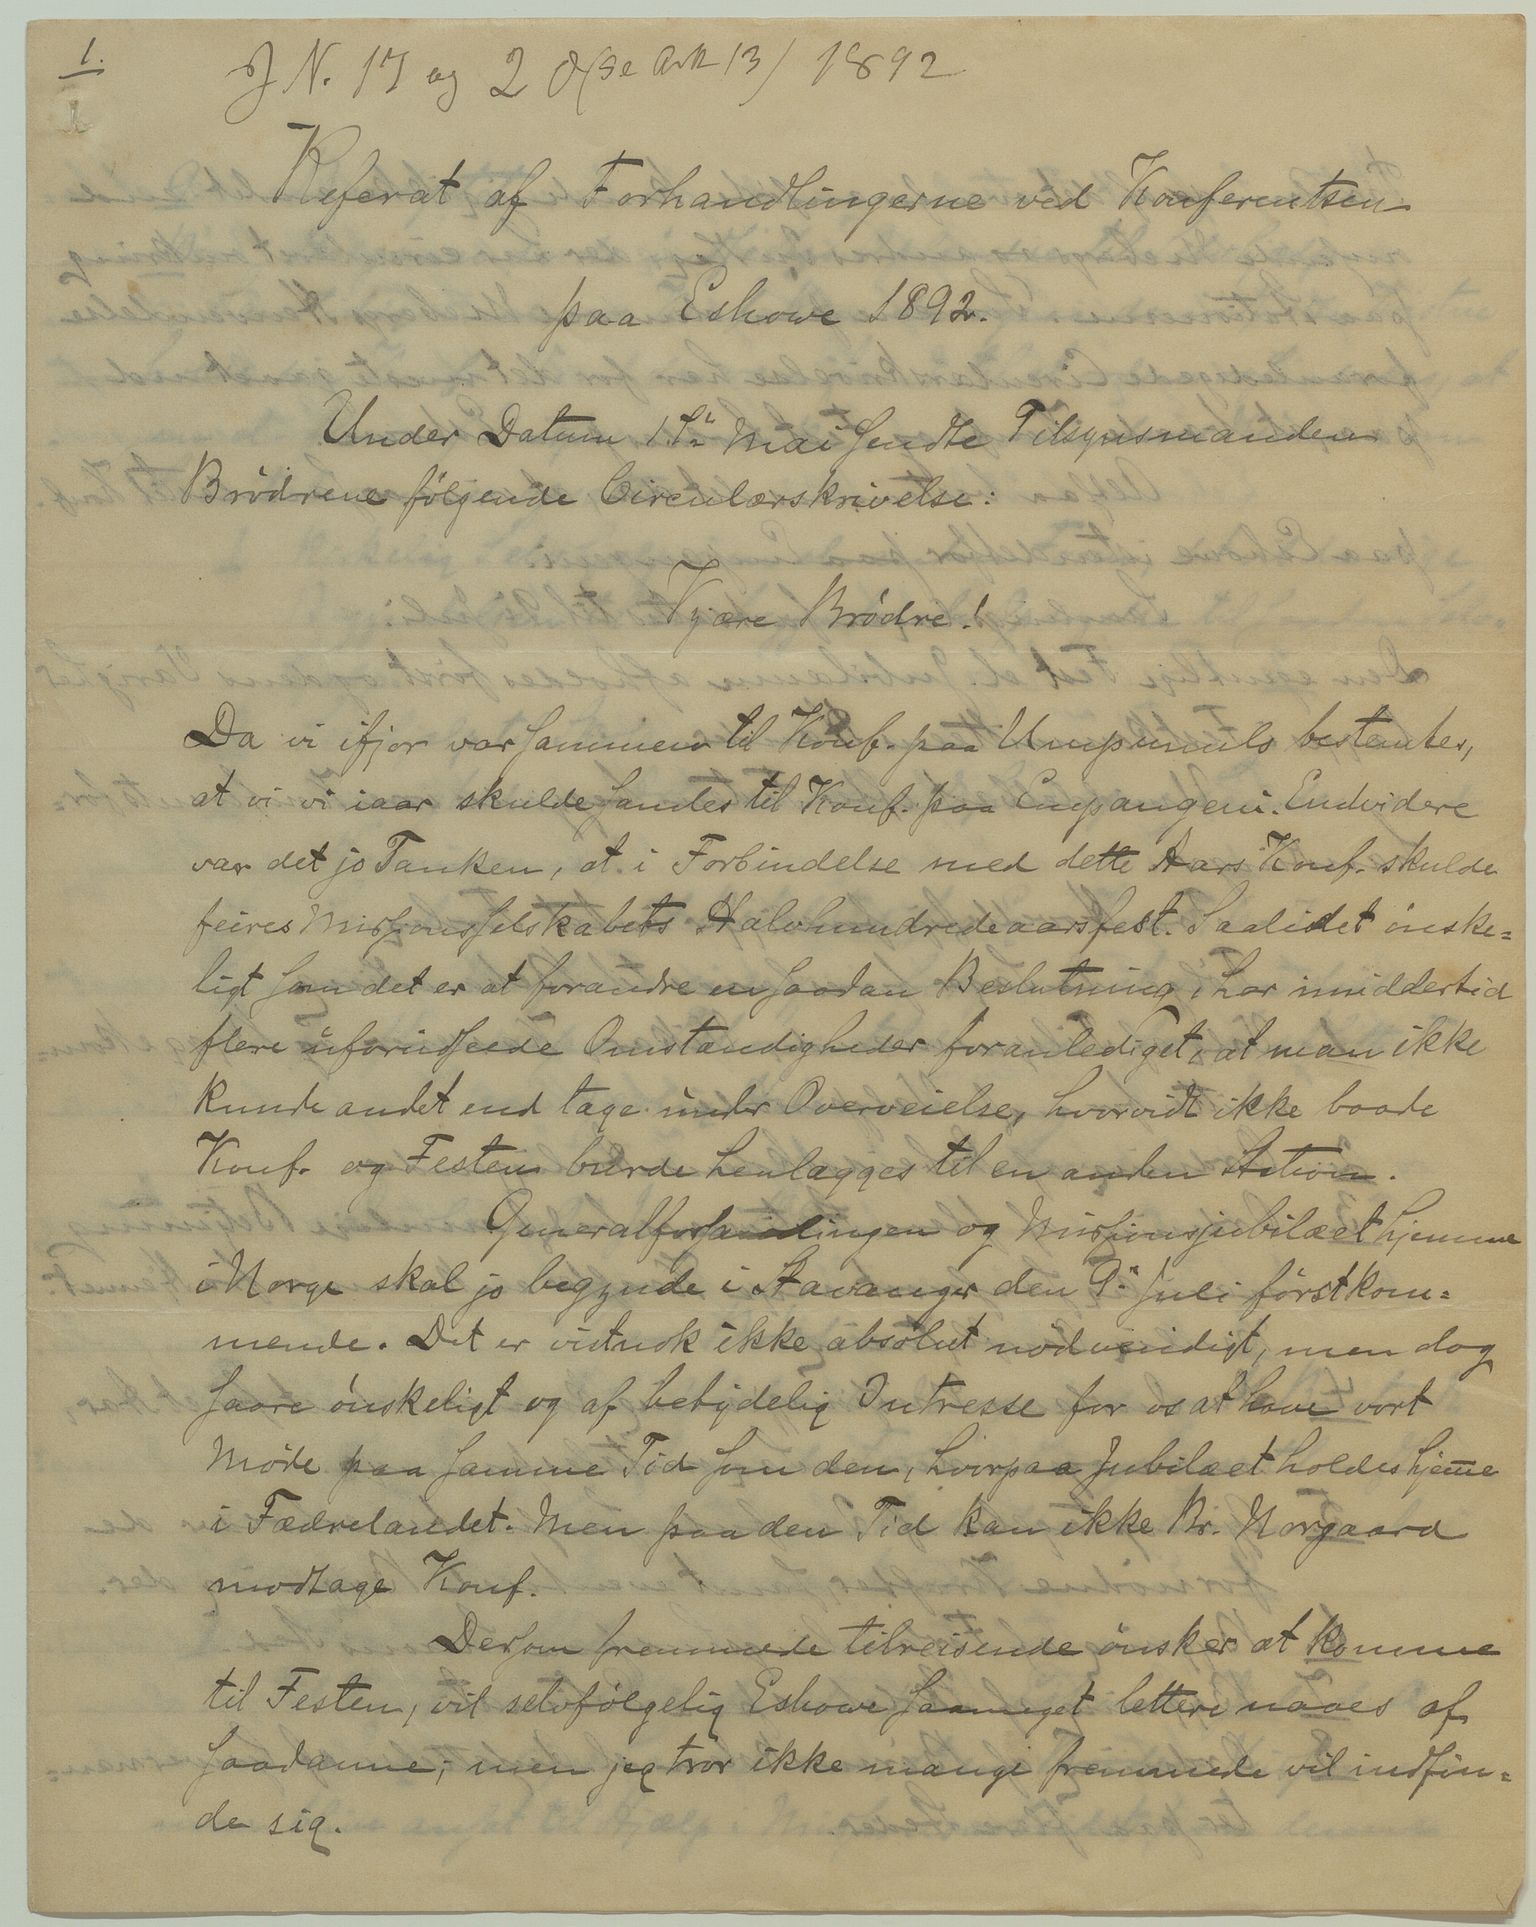 1.
J N. 17 og 2 (se Ark 13) 1892
Referat af Forhandlingerne ved Konferentsen
paa Eshowe 1892.
Under Datum 1ste Mai sendte Tilsynsmanden
Brødrene følgende Circulærskrivelse:
Kjære Brødre!
Da vi ifjor var sammen til Konf. paa Umpumulo bestemtes,
at vi vi iaar skulde samles til Konf. paa Empangeni. Endvidere
var det jo Tanken, at i Forbindelse med dette Aars Konf. skulde
feires Missionsselskabets Halvhundredeaarsfest. Saa lidet ønske=
ligt som det er at forandre en saadan Beslutning, har imidlertid
flere uforudseede Omstændigheder foranlediget, at man ikke
kunde andet end tage under Overveielse, hvorvidt ikke baade
Konf. og Festen burde henlægges til en anden Station.
Generalforsamlingen og Missionsjubilæet hjemme
i Norge skal jo begynde i Stavanger den 9de Juli førstkom=
mende. Det er vistnok ikke absolut nødvendigt, men dog
saare ønskeligt og af betydelig Intresse for os at have vort
Møde paa samme Tid som den, hvorpaa Jubilæet holdes hjemme
i Fædrelandet. Men paa den Tid kan ikke Br. Norgaard
modtage Konf.
Dersom fremmede tilreisende ønsker at komme
til Festen, vil selvfølgelig Eshowe saameget lettere naaes af
saadanne; men jeg tror ikke mange fremmede vil indfin=
de sig.